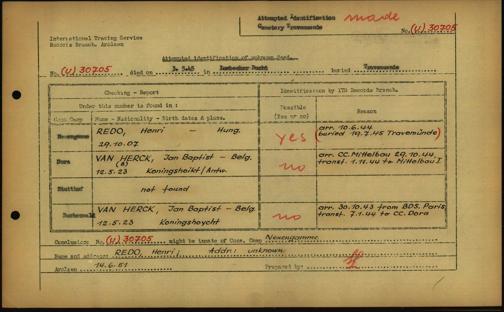 Attempted Identification made
Cemetery Travemuende
No. (U) 30705
International Tracing Service
Records Branch, Arolsen
Attempted identification of unknown dead.
No. (U) 30705 died on 3.5.45 in Luebecker Bucht buried Travemuende
Checking - Report
Identification by ITS Records Branch.
Under this number is found in :
Possible
(Yes or no)
Reason
Conc Camp
Name - Nationality - Birth dates & place.
Neuengamme
REDO, Henri - Hung.
29.10.07
yes
arr. 10.6.44
(buried 19.7.45 Travemünde)
Dora
VAN HERCK, Jan Baptist - Belg.
(B)
12.5.23 Koningshoikt/Antw.
no
arr. CC. Mittelbau 29.10.44
transf. 1.11.44 to Mittelbau I
Stutthof
not found
Buchenwald
VAN HERCK, Jan Baptist - Belg.
12.5.23 Koningshoycht
no
arr. 30.10.43 from BDS. Paris,
transf. 7.1.44 to CC. Dora
Conclusion: No. (U) 30705 might be inmate of Conc. Camp Neuengamme
Name and address: REDO, Henri; Addr: unknown
14.6.51
Arolsen
Prepared by: